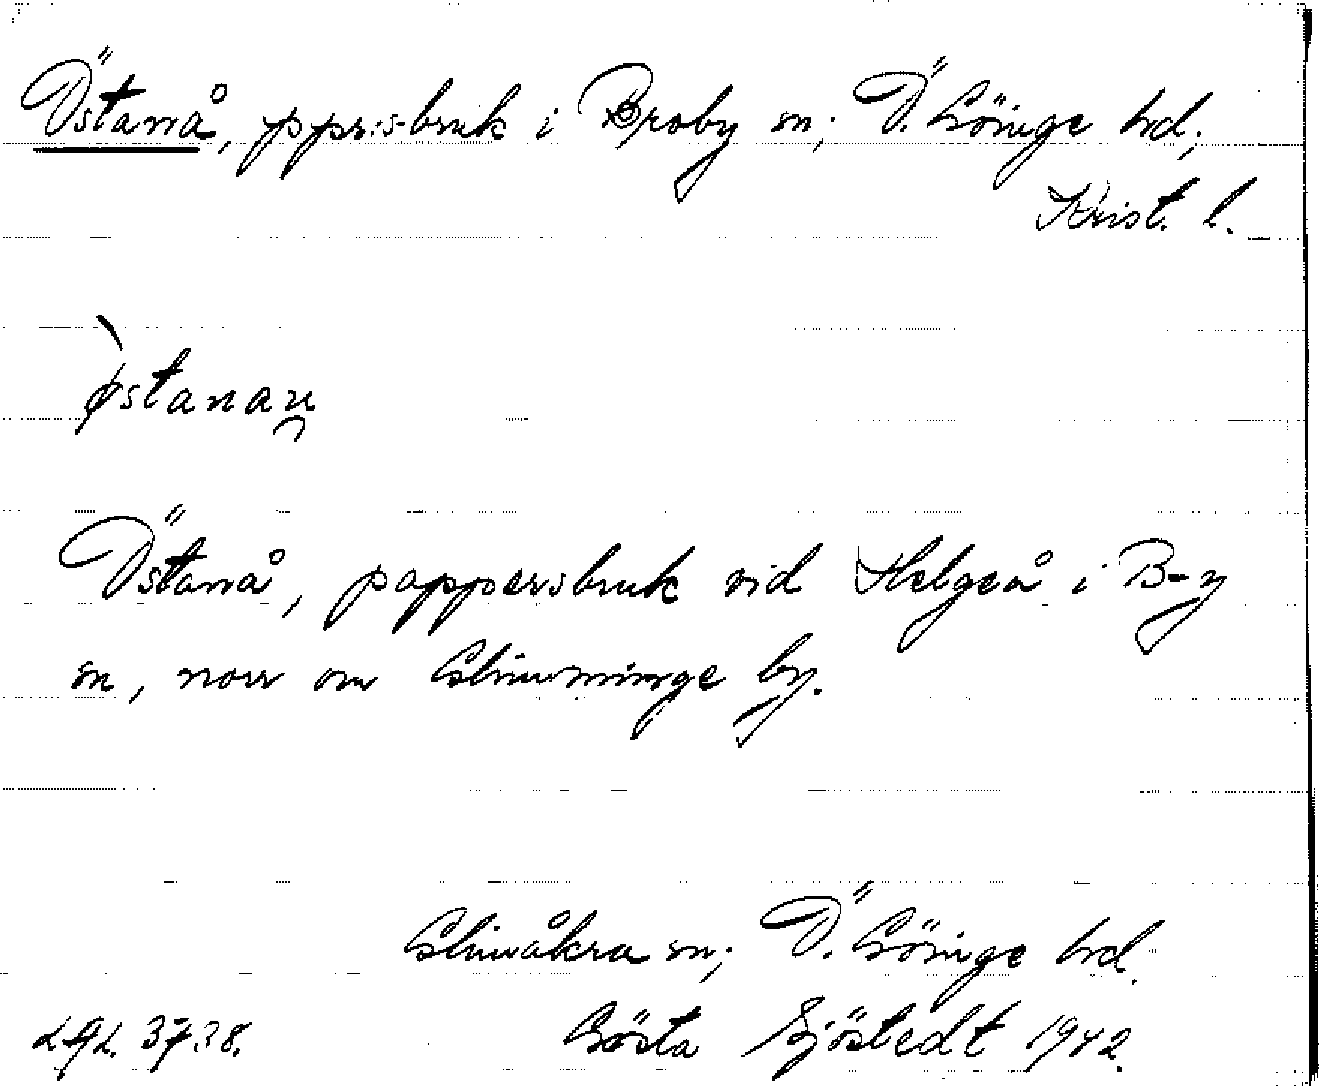 Östanå, pprs-bruk i Broby sn; Ö. Göinge hd;
Krist. l.
østanaṷ
Östanå, pappersbruk vid Helgeå i B-y
sn, norr om Glimminge by.
Glimåkra sn; Ö. Göinge hd.
LAL. 3738. Gösta Sjöstedt 1942.